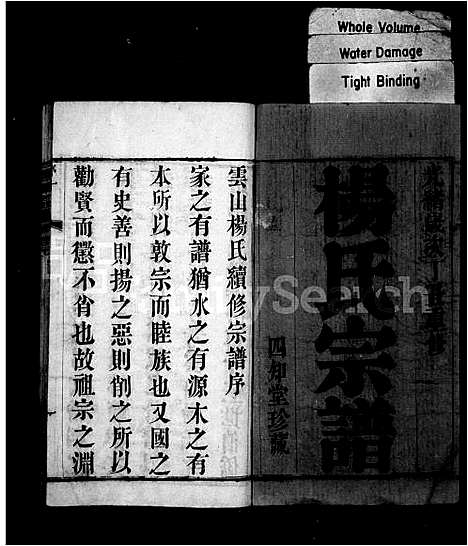 Whole Volume
Water Damage
Tight Binding
楊氏宗譜
四知堂珍藏
雲山楊氏續修宗譜序
家之有譜猶水之有源木之有
本所以敦宗而睦族也又國之
有史善則揚之惡則削之所以
勸賢而懲不肖也故祖宗之淵
FamilySearch